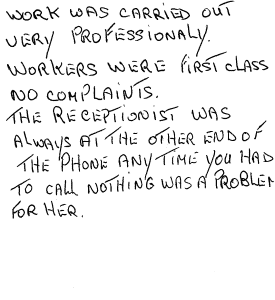 WORK WAS CARRIED OUT
VERY PROFESSIONALY.
WORKERS WERE FIRST CLASS
NO COMPLAINTS.
THE RECEPTIONIST WAS
ALWAYS AT THE OTHER END OF
THE PHONE ANY TIME YOU HAD
TO CALL NOTHING WAS A PROBLEM
FOR HER.